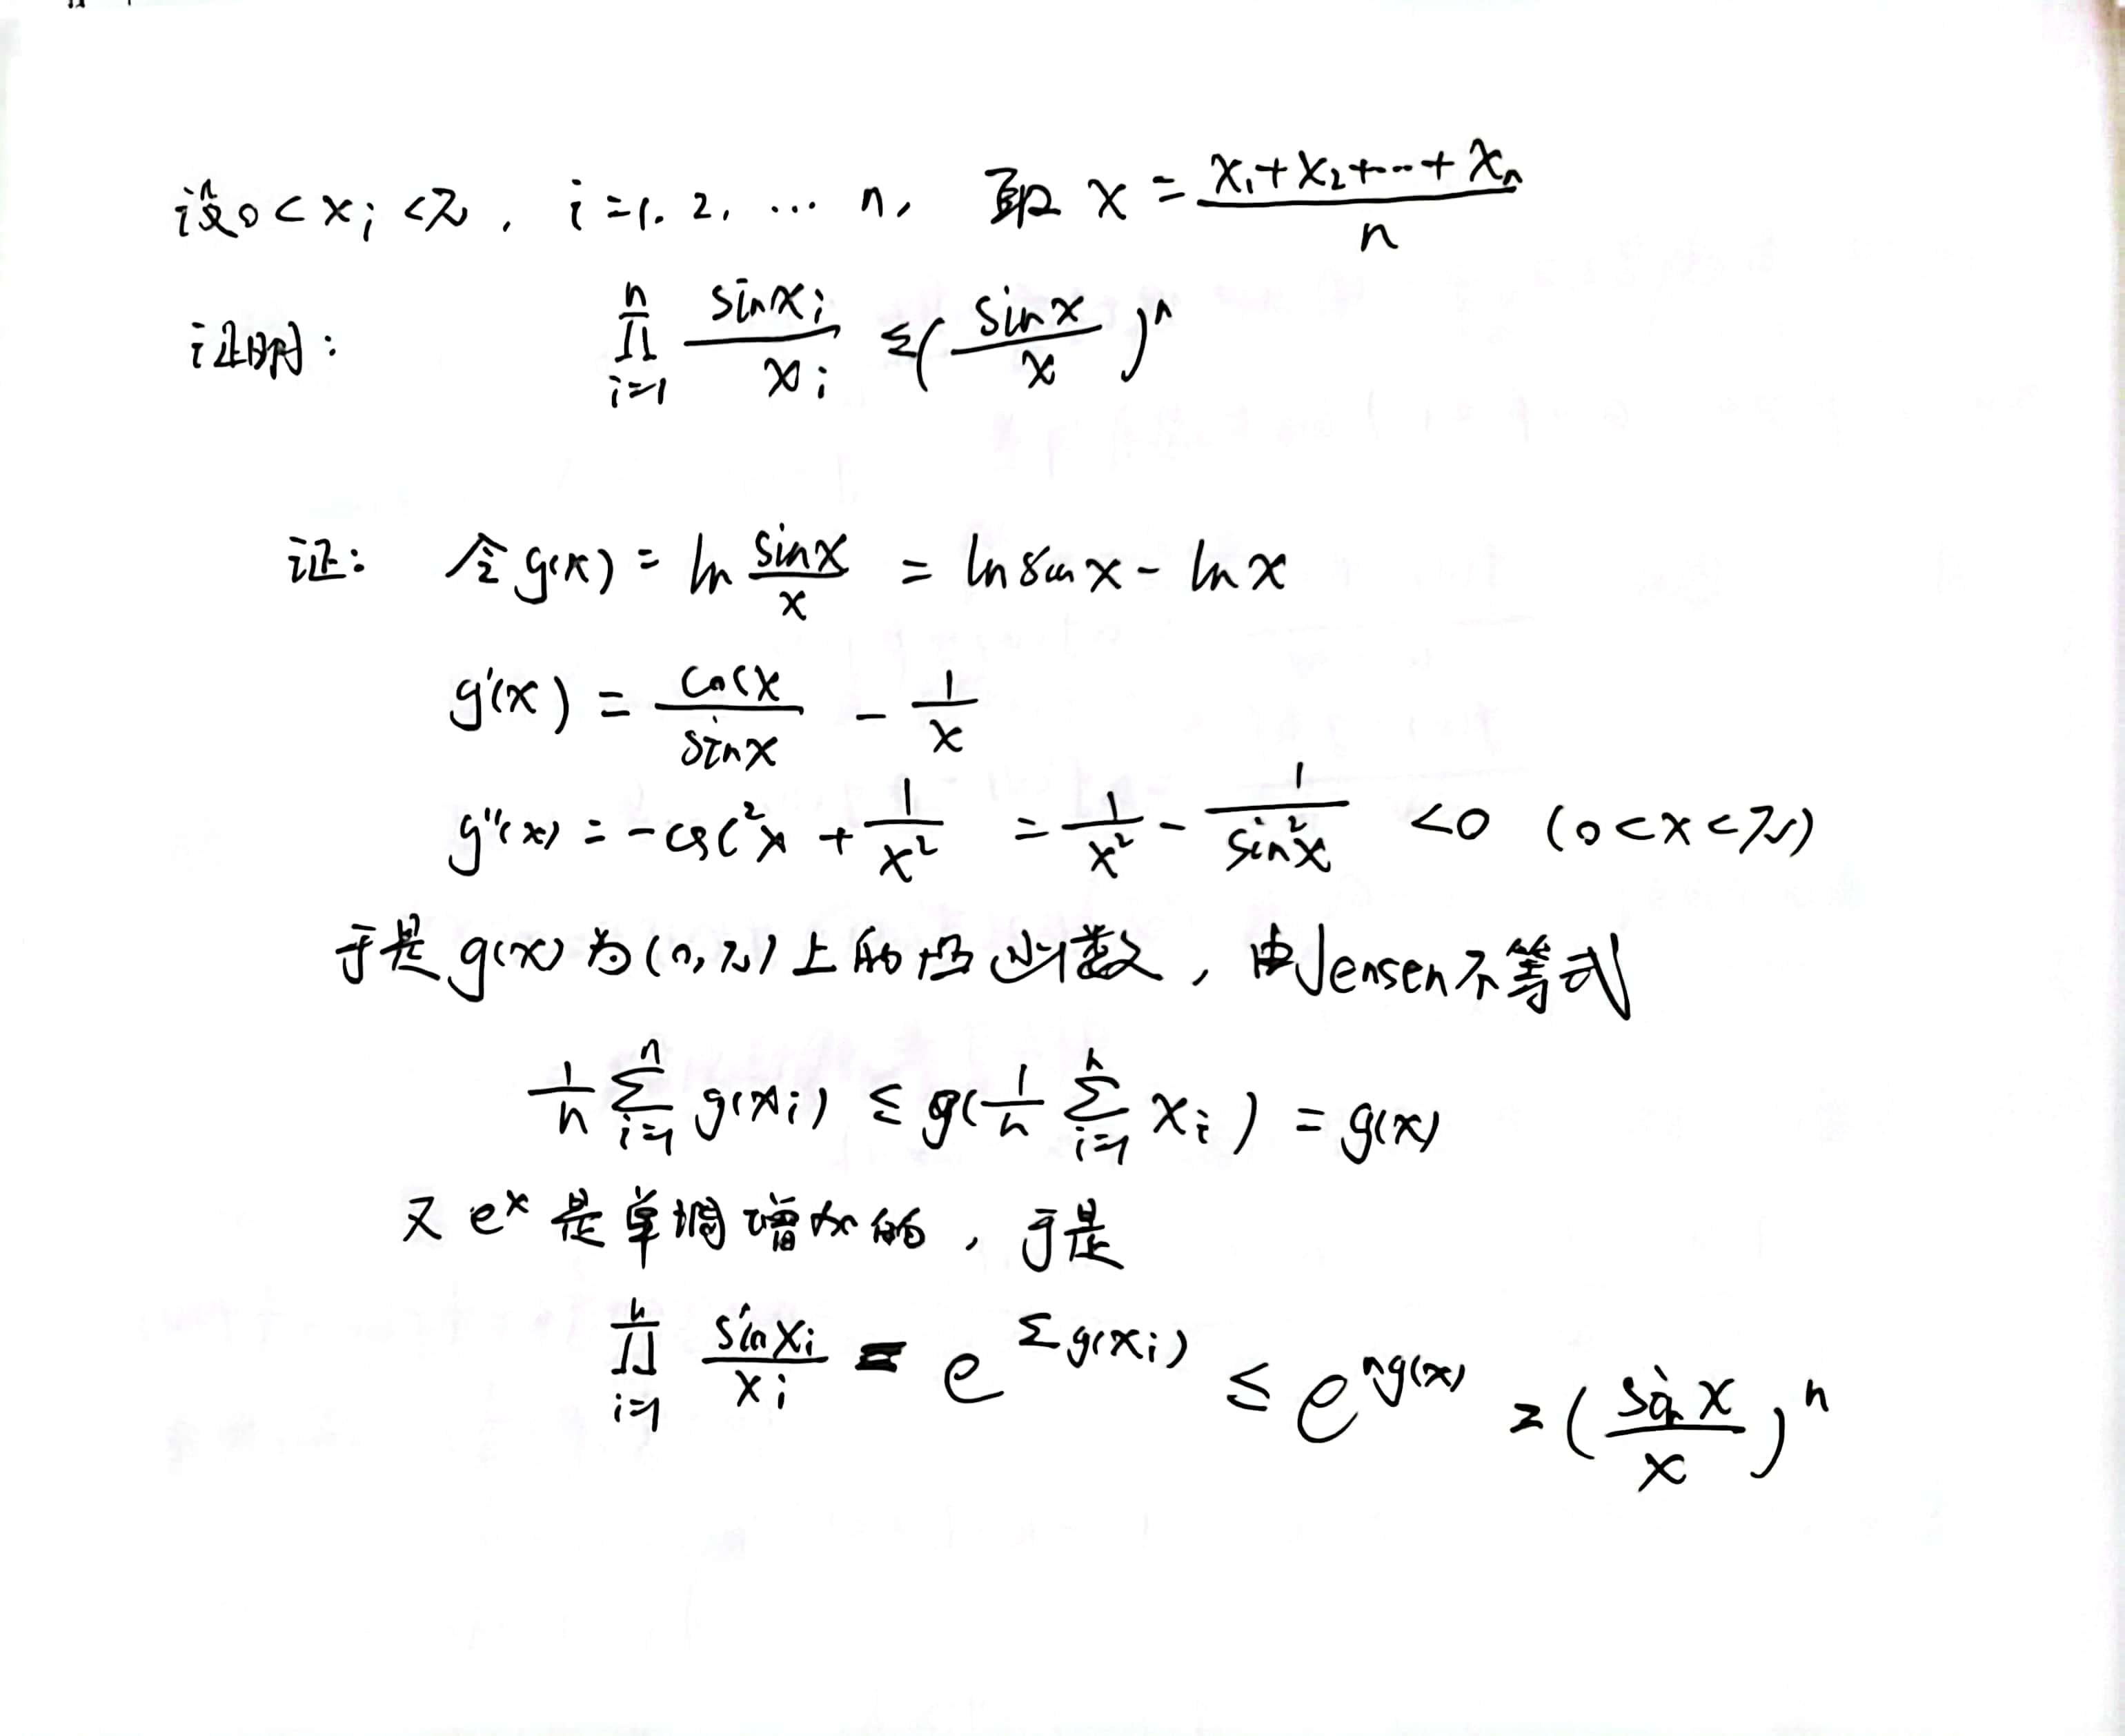 设0<x_i<π, i=1.2.…n, 取 x = (x_1+x_2+…+x_n)/n
证明: ∏_{i=1}^{n} sinx_i/x_i ≤ (sinx/x)^n
证: 令g(x) = ln sinx/x = ln sin x - ln x
g'(x) = cosx/sinx - 1/x
g''(x) = -csc²x + 1/x² = 1/x² - 1/sin²x <0 (0<x<π)
于是g(x)为(0,π)上的凹函数, 由Jensen不等式
1/n ∑_{i=1}^{n} g(x_i) ≤ g(1/n ∑_{i=1}^{n} x_i) = g(x)
又 e^x 是单调增加的, 于是
∏_{i=1}^{n} sinx_i/x_i = e^{∑g(x_i)} ≤ e^{ng(x)} = (sin x/x)^n